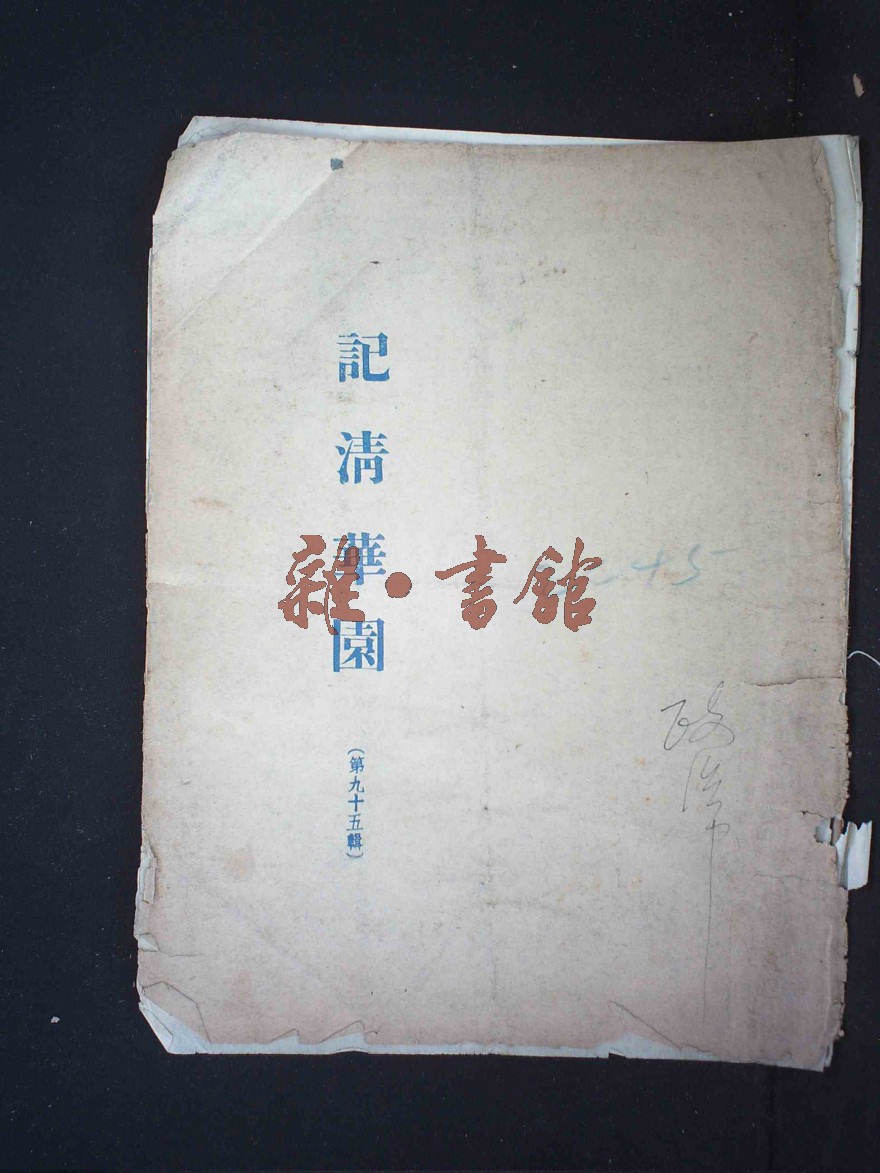 記清華園
(第九十五輯)
雜·書館
45